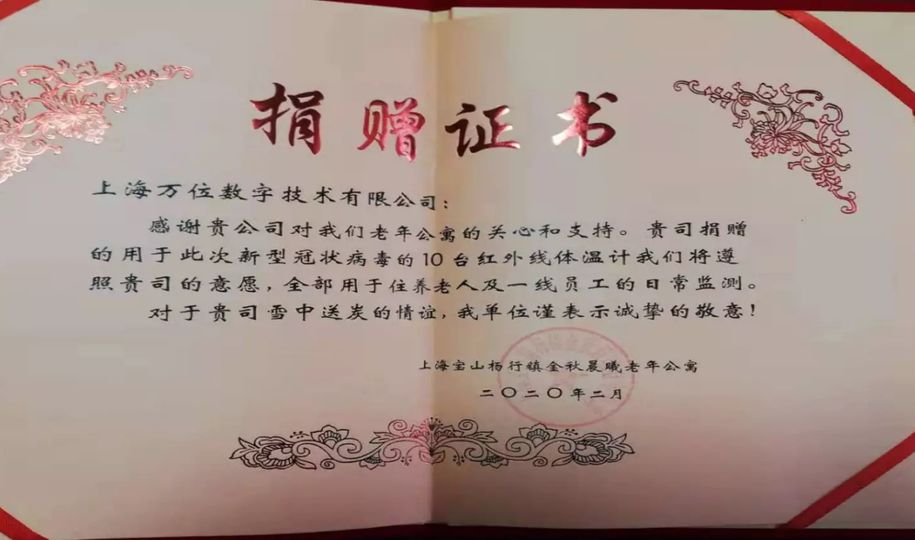 捐赠证书
上海万位数字技术有限公司：
感谢贵公司对我们老年公寓的关心和支持。贵司捐赠
的用于此次新型冠状病毒的10台红外线体温计我们将遵
照贵司的意愿，全部用于住养老人及一线员工的日常监测。
对于贵司雪中送炭的情谊，我单位谨表示诚挚的敬意！
上海宝山杨行镇金秋晨曦老年公寓
二〇二〇年二月